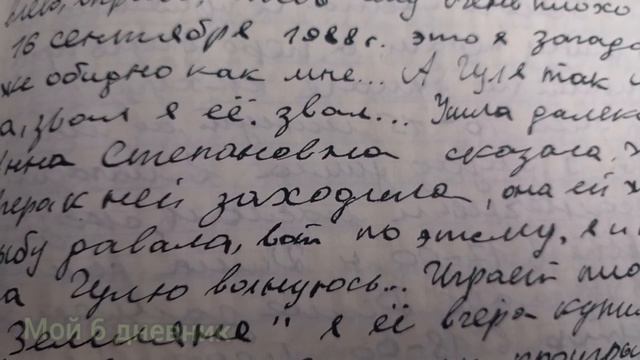 очень плохо
16 сентября 1988г. это я загада
же обидно как мне... А Гуля так и
а, звал я её. звал... Ушла далеко
Инна Степановна сказала.
вчера к ней заходила, она ей
ыбу давала, вот по этому, я и
а Гулю волнуюсь... Играет пла
Земляне" я её вчера купил
Мой 6 дневник